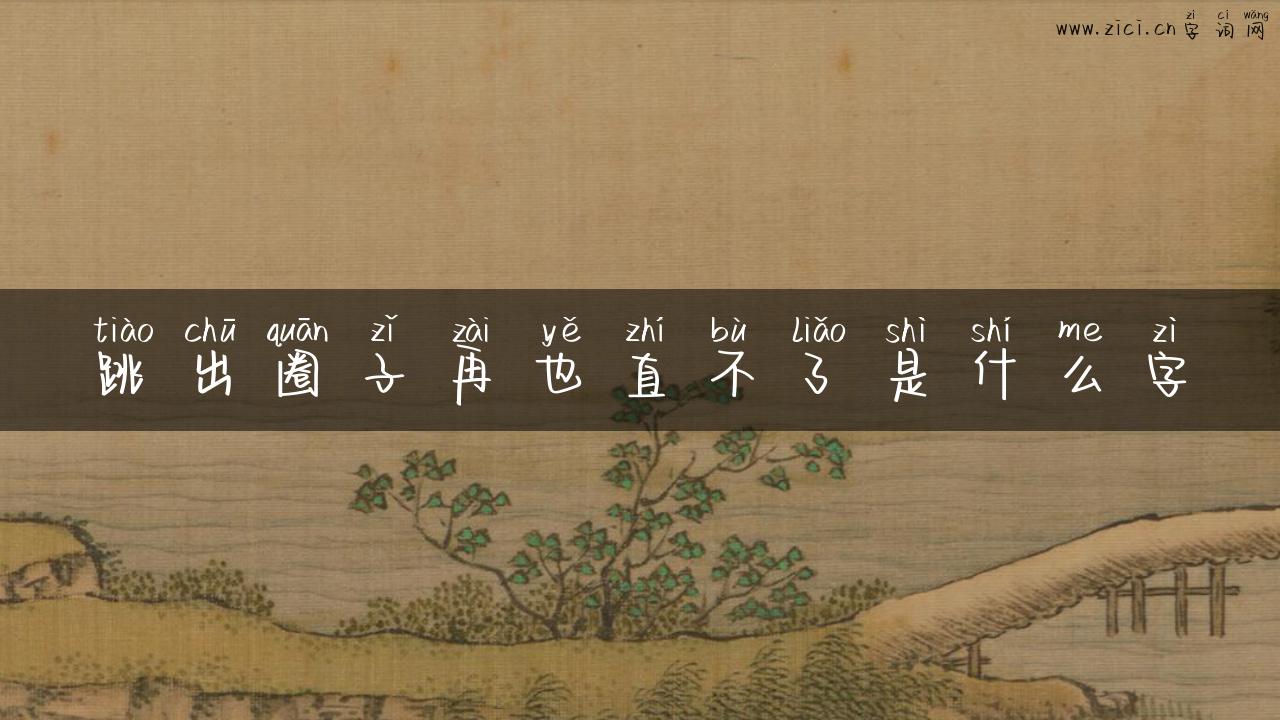 zì cí wǎng
www.zici.cn 字 词 网
tiào chū quān zǐ zài yě zhí bù liǎo shì shí me zì
跳 出 圈 子 再 也 直 不 了 是 什 么 字